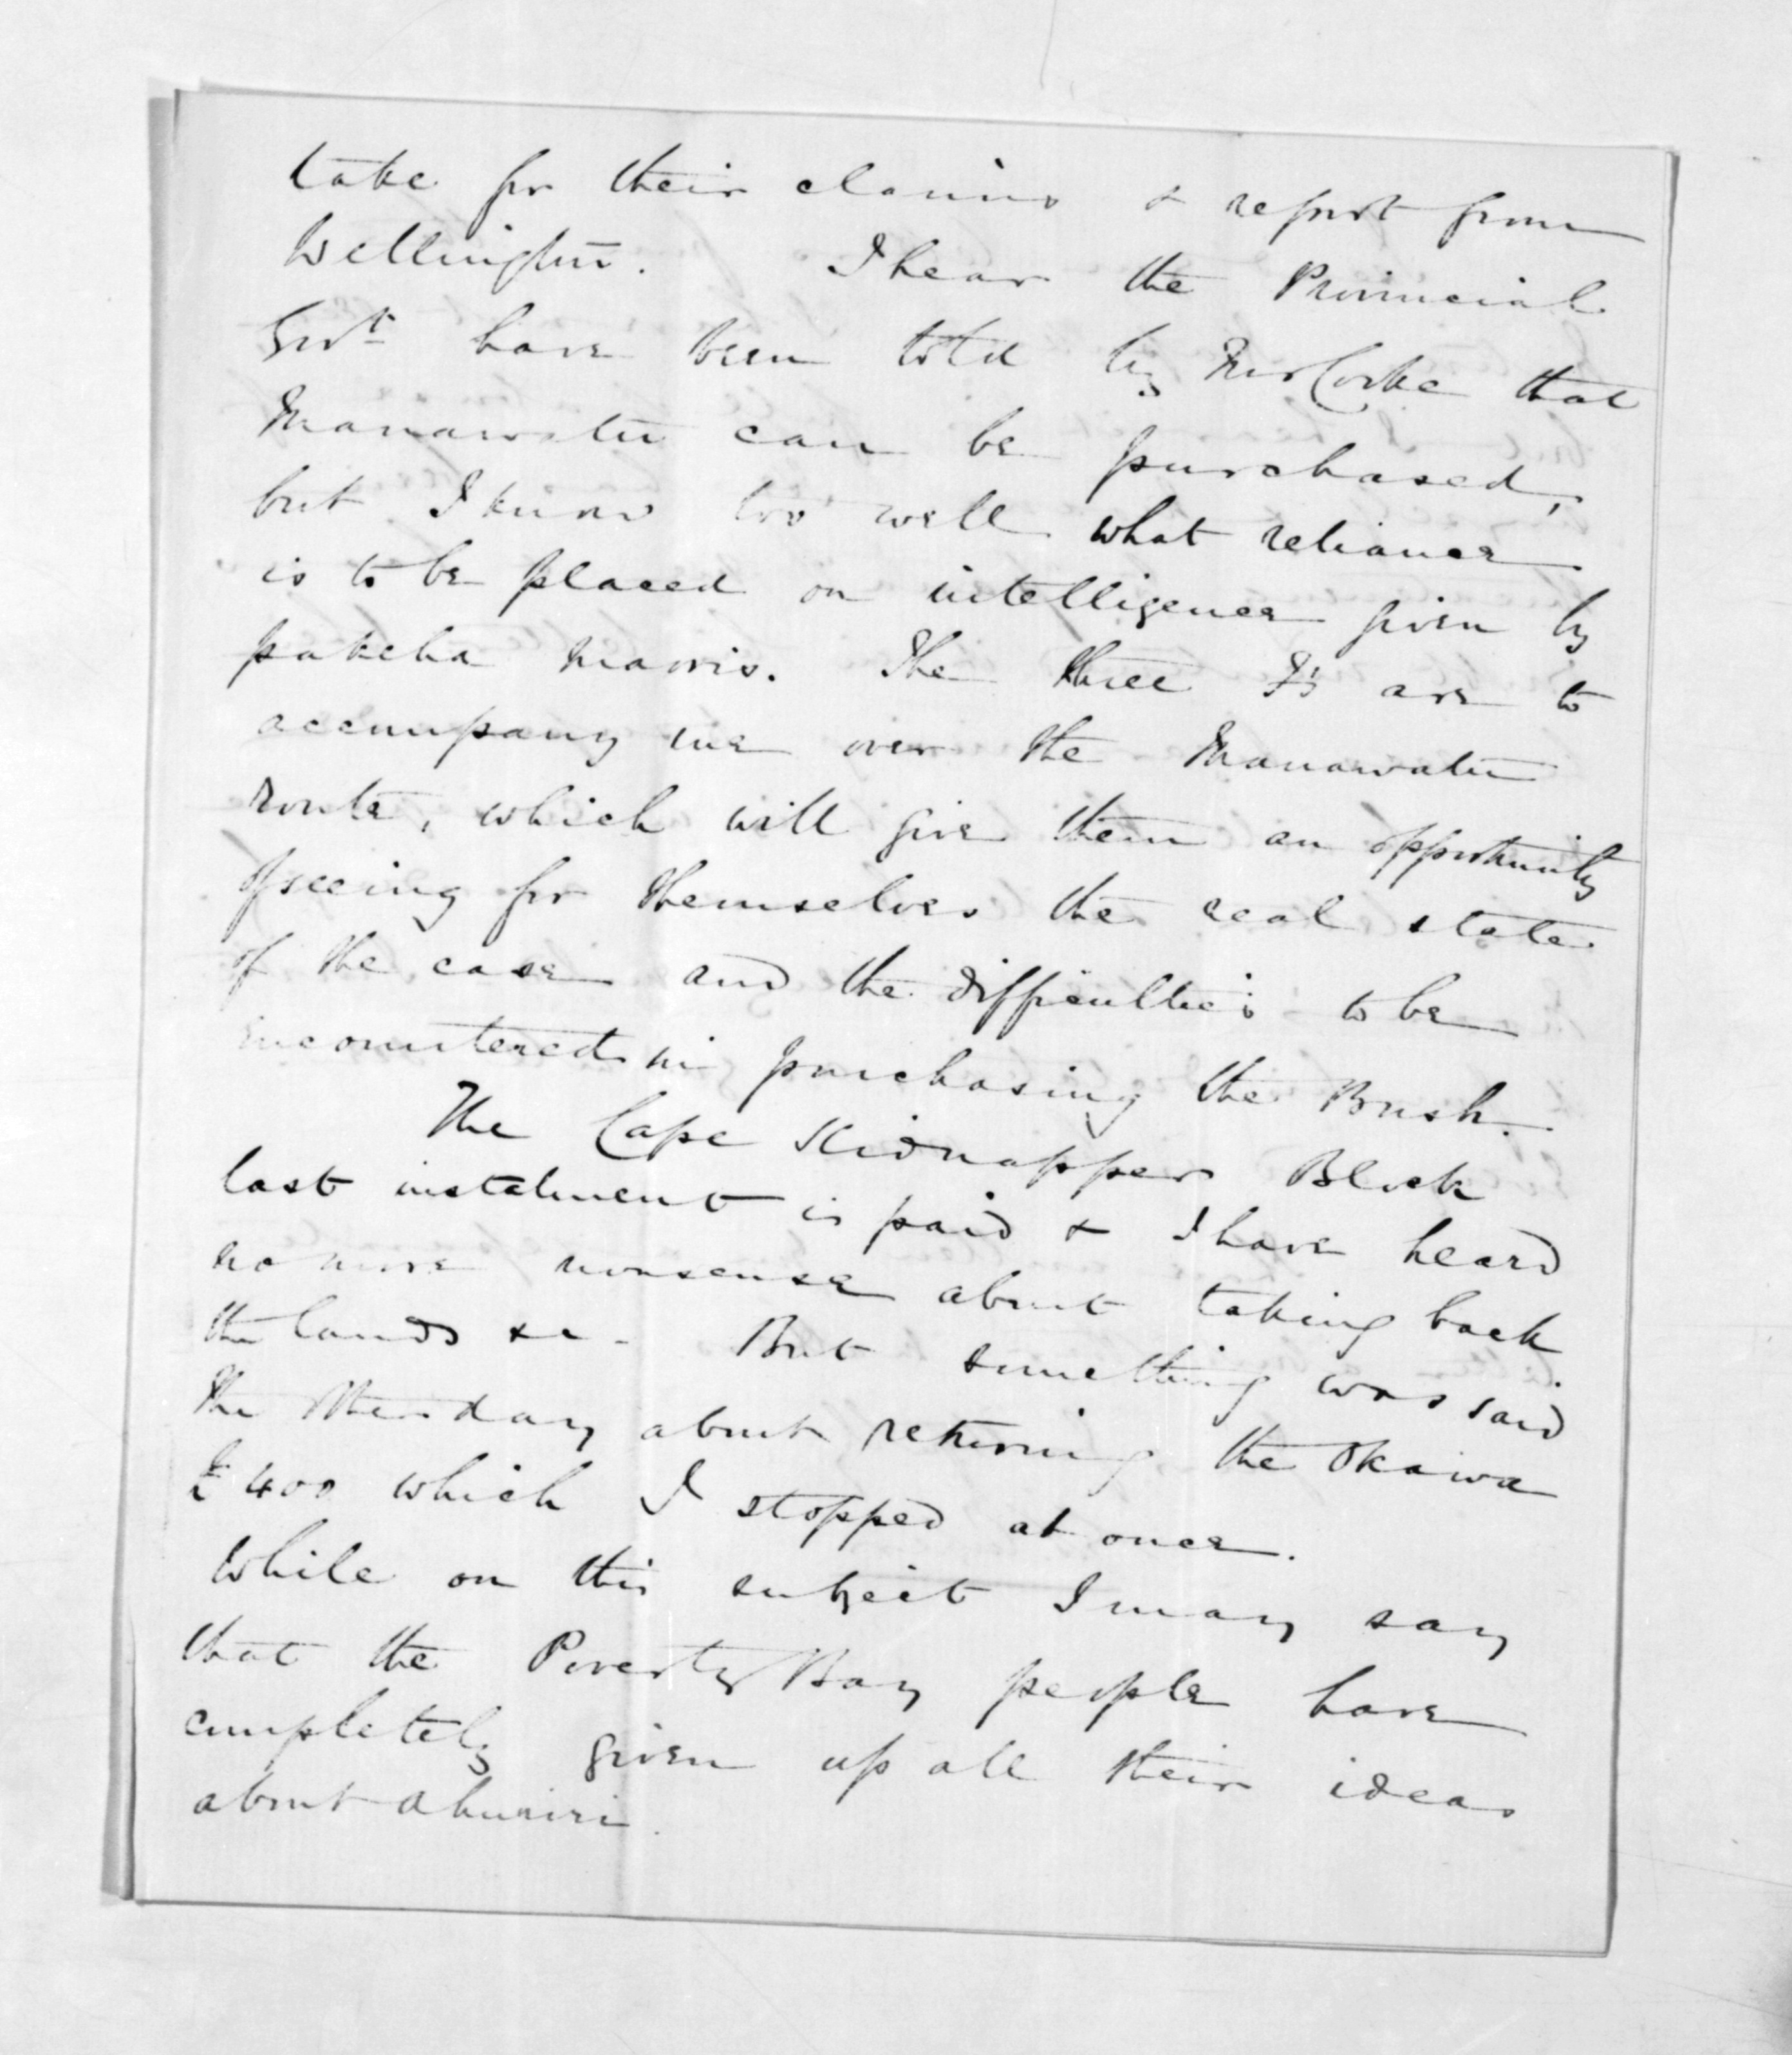 take for their claims & report from
Wellington. I hear the Provincial
Govt have been told by Mr Cooke that
Manawatu can be purchased,
but I know too well what reliance
is to be placed on intelligence given by
pakeha maoris. The three F's are to
accompany me over the Manawatu
route, which will give them an opportunity
of seeing for themselves the real state
of the case and the difficulties to be
incountered in purchasing the Bush.
The Cape Kidnapper Block
last instalment is paid & I have heard
no more nonsense about taking back
the lands &c - But something was said
the other day about returning the Okawa
£400 which I stopped at once.
While on this subject I may say
that the Poverty Bay people have
completely given up all their ideas
about Ahuriri.